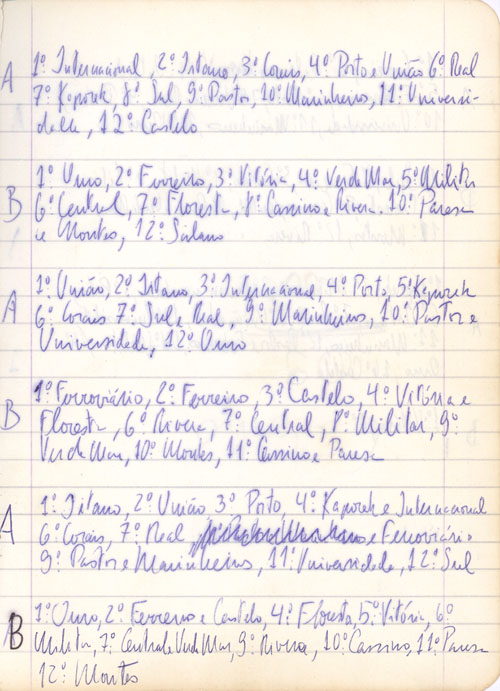 A 1º Internacional, 2º Istano, 3º Corais, 4º Porto e União 6º Real
7º Kaporek, 8º Sul, 9º Pastor, 10º Marinheiros, 11º Universi-
dade, 12º Castelo
B 1º Ouro, 2º Ferreiro, 3º Vitória, 4º Verde Mar, 5º Militar
6º Central, 7º Floresta, 8º Cassino e Rivera. 10º
e Montes, 12º
A 1º União, 2º Istano, 3º Internacional, 4º Porto, 5º Kaporek
6º Corais 7º Sul e Real, 9º Marinheiros, 10º Pastor e
Universidade, 12º Ouro
B 1º Ferroviário, 2º Ferreiro, 3º Castelo, 4º Vitória e
Floresta, 6º Rivera, 7º Central, 8º Militar, 9º
Verde Mar, 10º Montes, 11º Cassino e
A 1º Istano, 2º União 3º Porto, 4º Kaporek e Internacional
6º Corais, 7º Real e Ferroviário
9º Pastor e Marinheiros, 11º Universidade, 12º Sul
B 1º Ouro, 2º Ferreiro e Castelo, 4º Floresta, 5º Vitória, 6º
Militar, 7º Central e Verde Mar, 9º Rivera, 10º Cassino, 11º
12º Montes